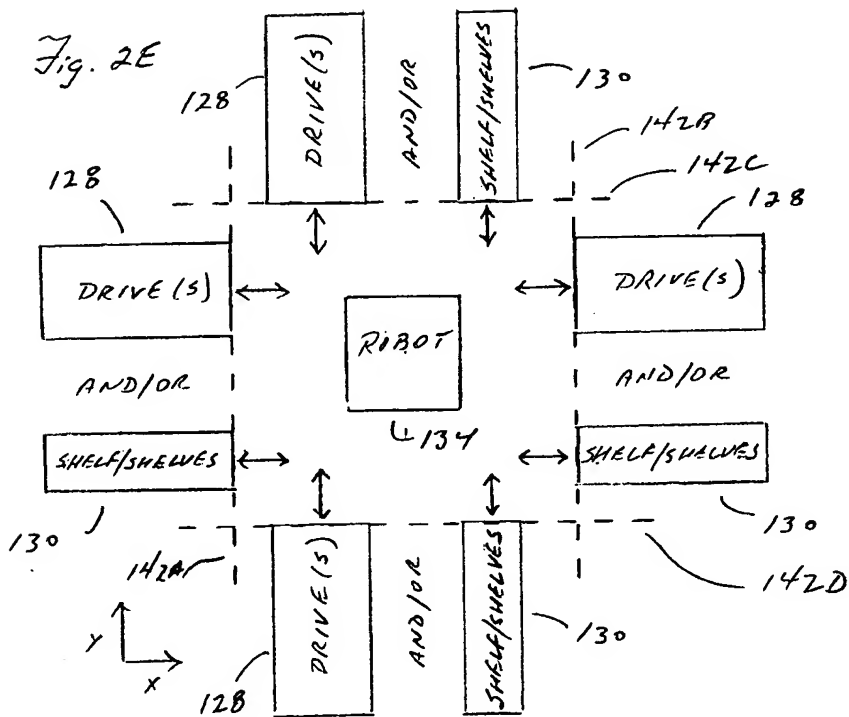 Fig. 2E
128
DRIVE(S)
AND/OR
SHELF/SHELVES
130
142B
142C
128
DRIVE(S)
AND/OR
SHELF/SHELVES
130
ROBOT
134
128
DRIVE(S)
AND/OR
SHELF/SHELVES
130
142A
142D
128
DRIVE(S)
AND/OR
SHELF/SHELVES
130
Y
X